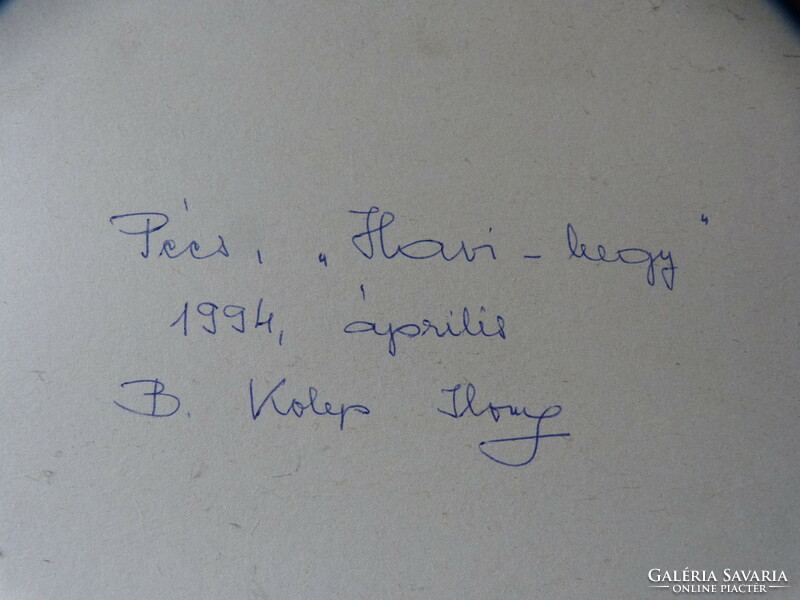 Pécs, „Havi-hegy”
1994, április
B. Kolep Ilona
GALÉRIA SAVARIA
ONLINE PIACTÉR